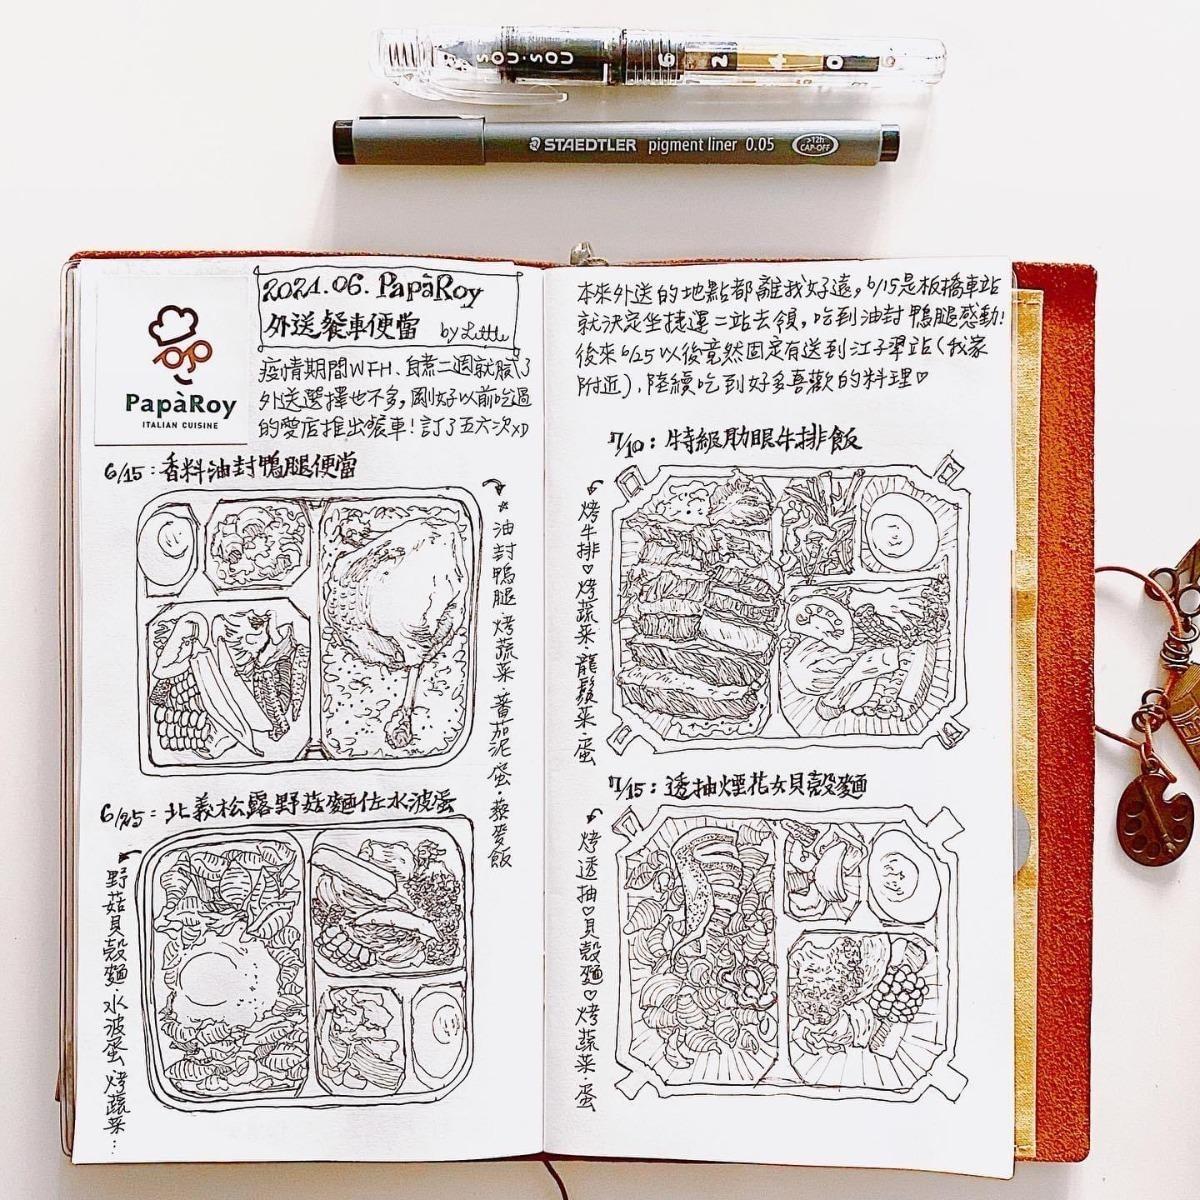 SOU・SOU
6 2 4 0 9
STAEDTLER pigment liner 0.05
>12h
CAP-OFF
PapàRoy
ITALIAN CUISINE
2021.06. PapàRoy
外送餐車便當 by Little
疫情期間WFH、自煮二週就膩了
外送選擇也不多，剛好以前吃過
的愛店推出餐車！訂了五六次XD
6/15：香料油封鴨腿便當
油封鴨腿 烤蔬菜 蕃茄泥 蛋·藜麥飯
6/25：北義松露野菇麵佐水波蛋
野菇貝殼麵 水波蛋·烤蔬菜…
本來外送的地點都離我好遠，6/15是板橋車站
就決定坐捷運二站去領，吃到油封鴨腿感動！
後來6/25以後竟然固定有送到江子翠站（我家
附近），陸續吃到好多喜歡的料理♡
7/10：特級肋眼牛排飯
烤牛排♡烤蔬菜·龍鬚菜·蛋
7/15：透抽煙花女貝殼麵
烤透抽♡貝殼麵♡烤蔬菜·蛋